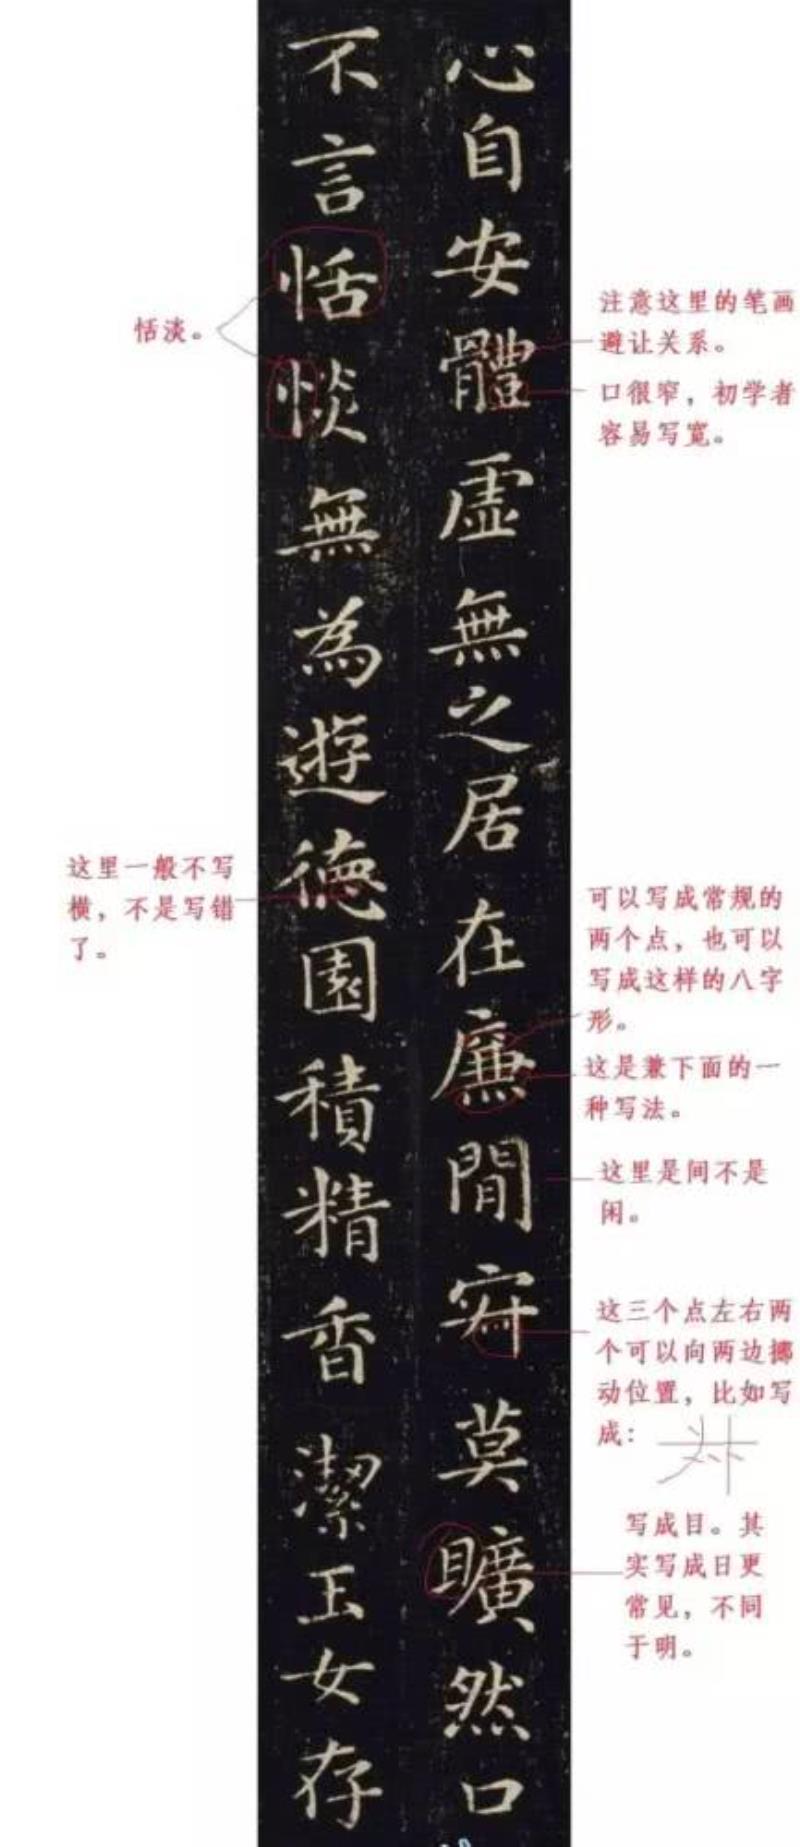 心自安體虛無之居在廉間寂莫曠然口
不言恬惔無為遊德園積精香潔玉女存
恬淡。
这里一般不写
横，不是写错
了。
注意这里的笔画
避让关系。
口很窄，初学者
容易写宽。
可以写成常规的
两个点，也可以
写成这样的八字
形。
这是兼下面的一
种写法。
这里是间不是
闲。
这三个点左右两
个可以向两边挪
动位置，比如写
成：
写成目。其
实写成日更
常见，不同
于明。